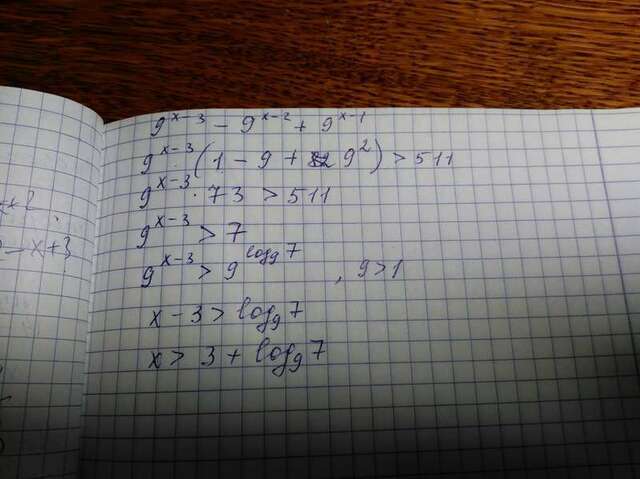 9^{x-3} - 9^{x-2} + 9^{x-1}
9^{x-3} · (1 - 9 + 9^2) > 511
9^{x-3} · 73 > 511
9^{x-3} > 7
9^{x-3} > 9^{log_9 7} , 9>1
x - 3 > log_9 7
x > 3 + log_9 7
- x+3